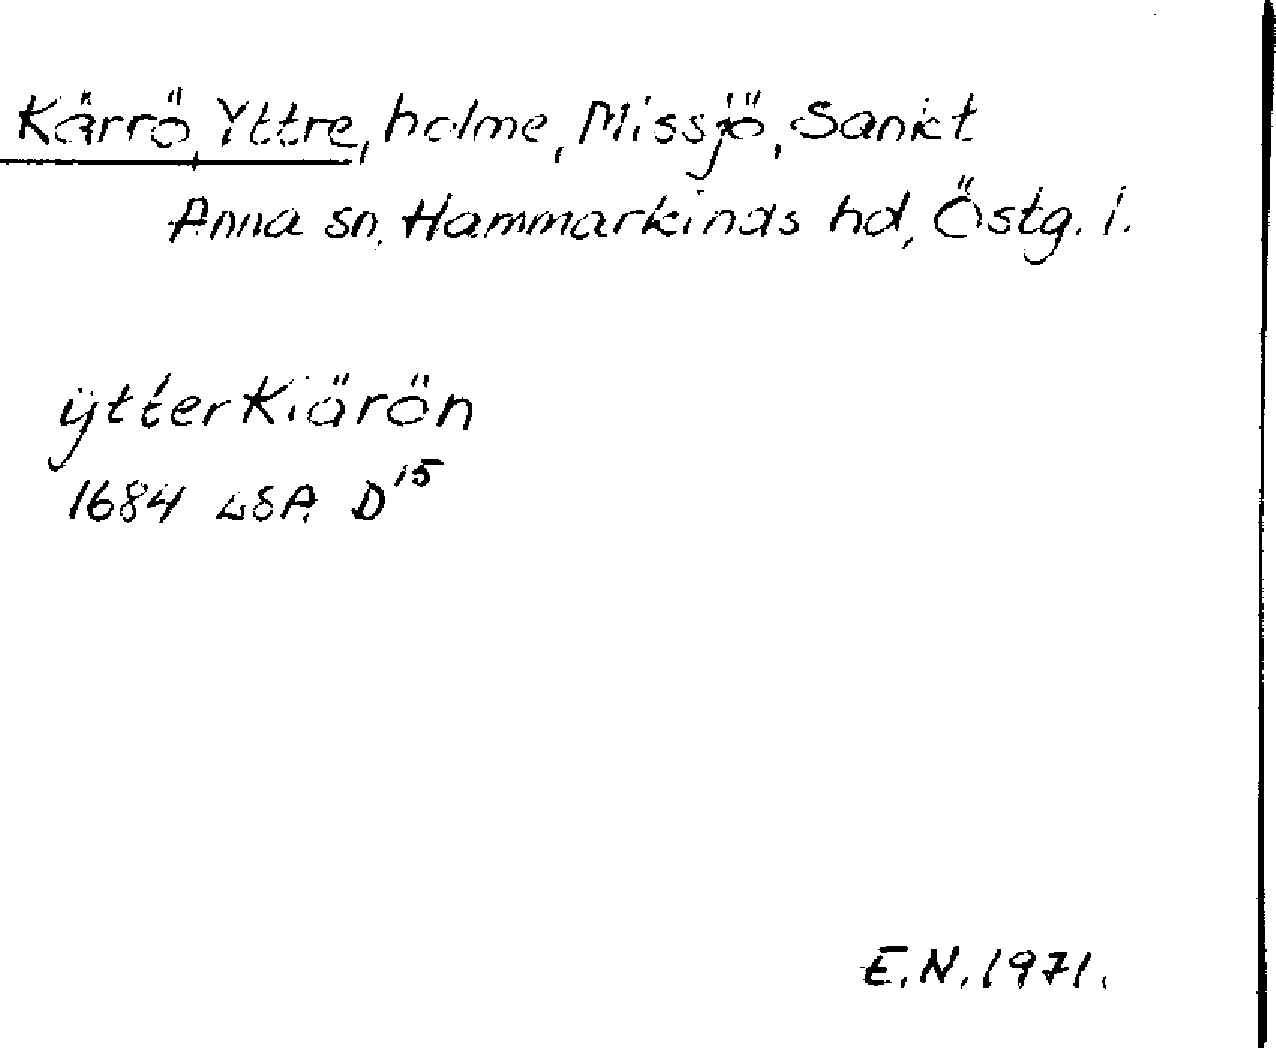 Kärrö, Yttre, holme, Missjö, Sankt
Anna sn, Hammarkinds hd, Östg. l.
ÿtter Kiärön
1684 LSA D15
E.N. 1971.